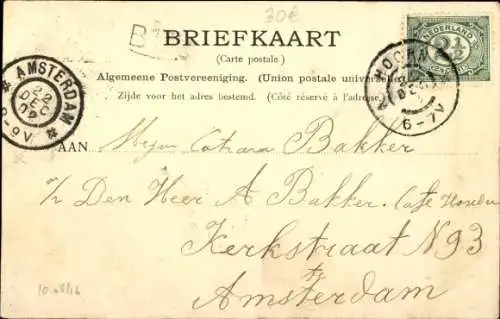 30€
BRIEFKAART
(Carte postale)
Algemeene Postvereeniging. (Union postale universelle)
Zijde voor het adres bestemd. (Côté réservé à l'adresse.)
NEDERLAND
2½
AMSTERDAM
22
DEC
6-7V
AAN Bakker
Den Heer A Bakker. Cafe
Kerkstraat N 93
Amsterdam